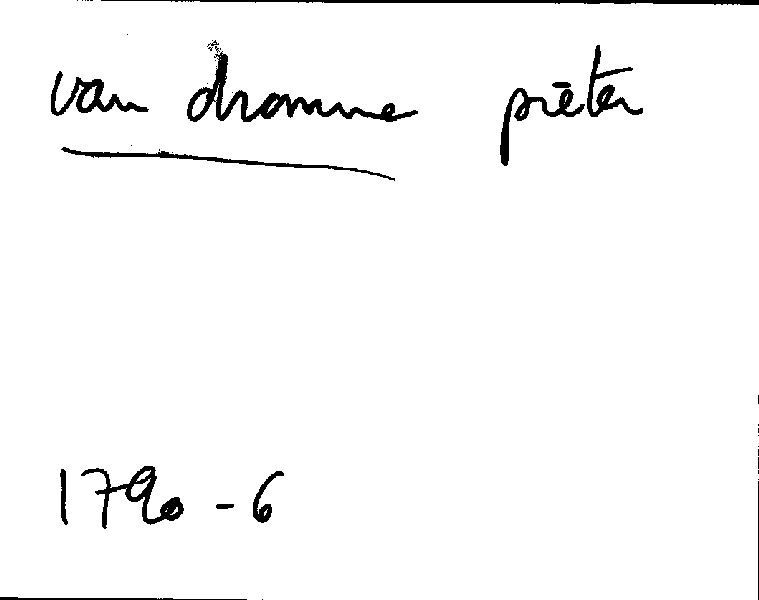 van dromme piēter
1790 - 6